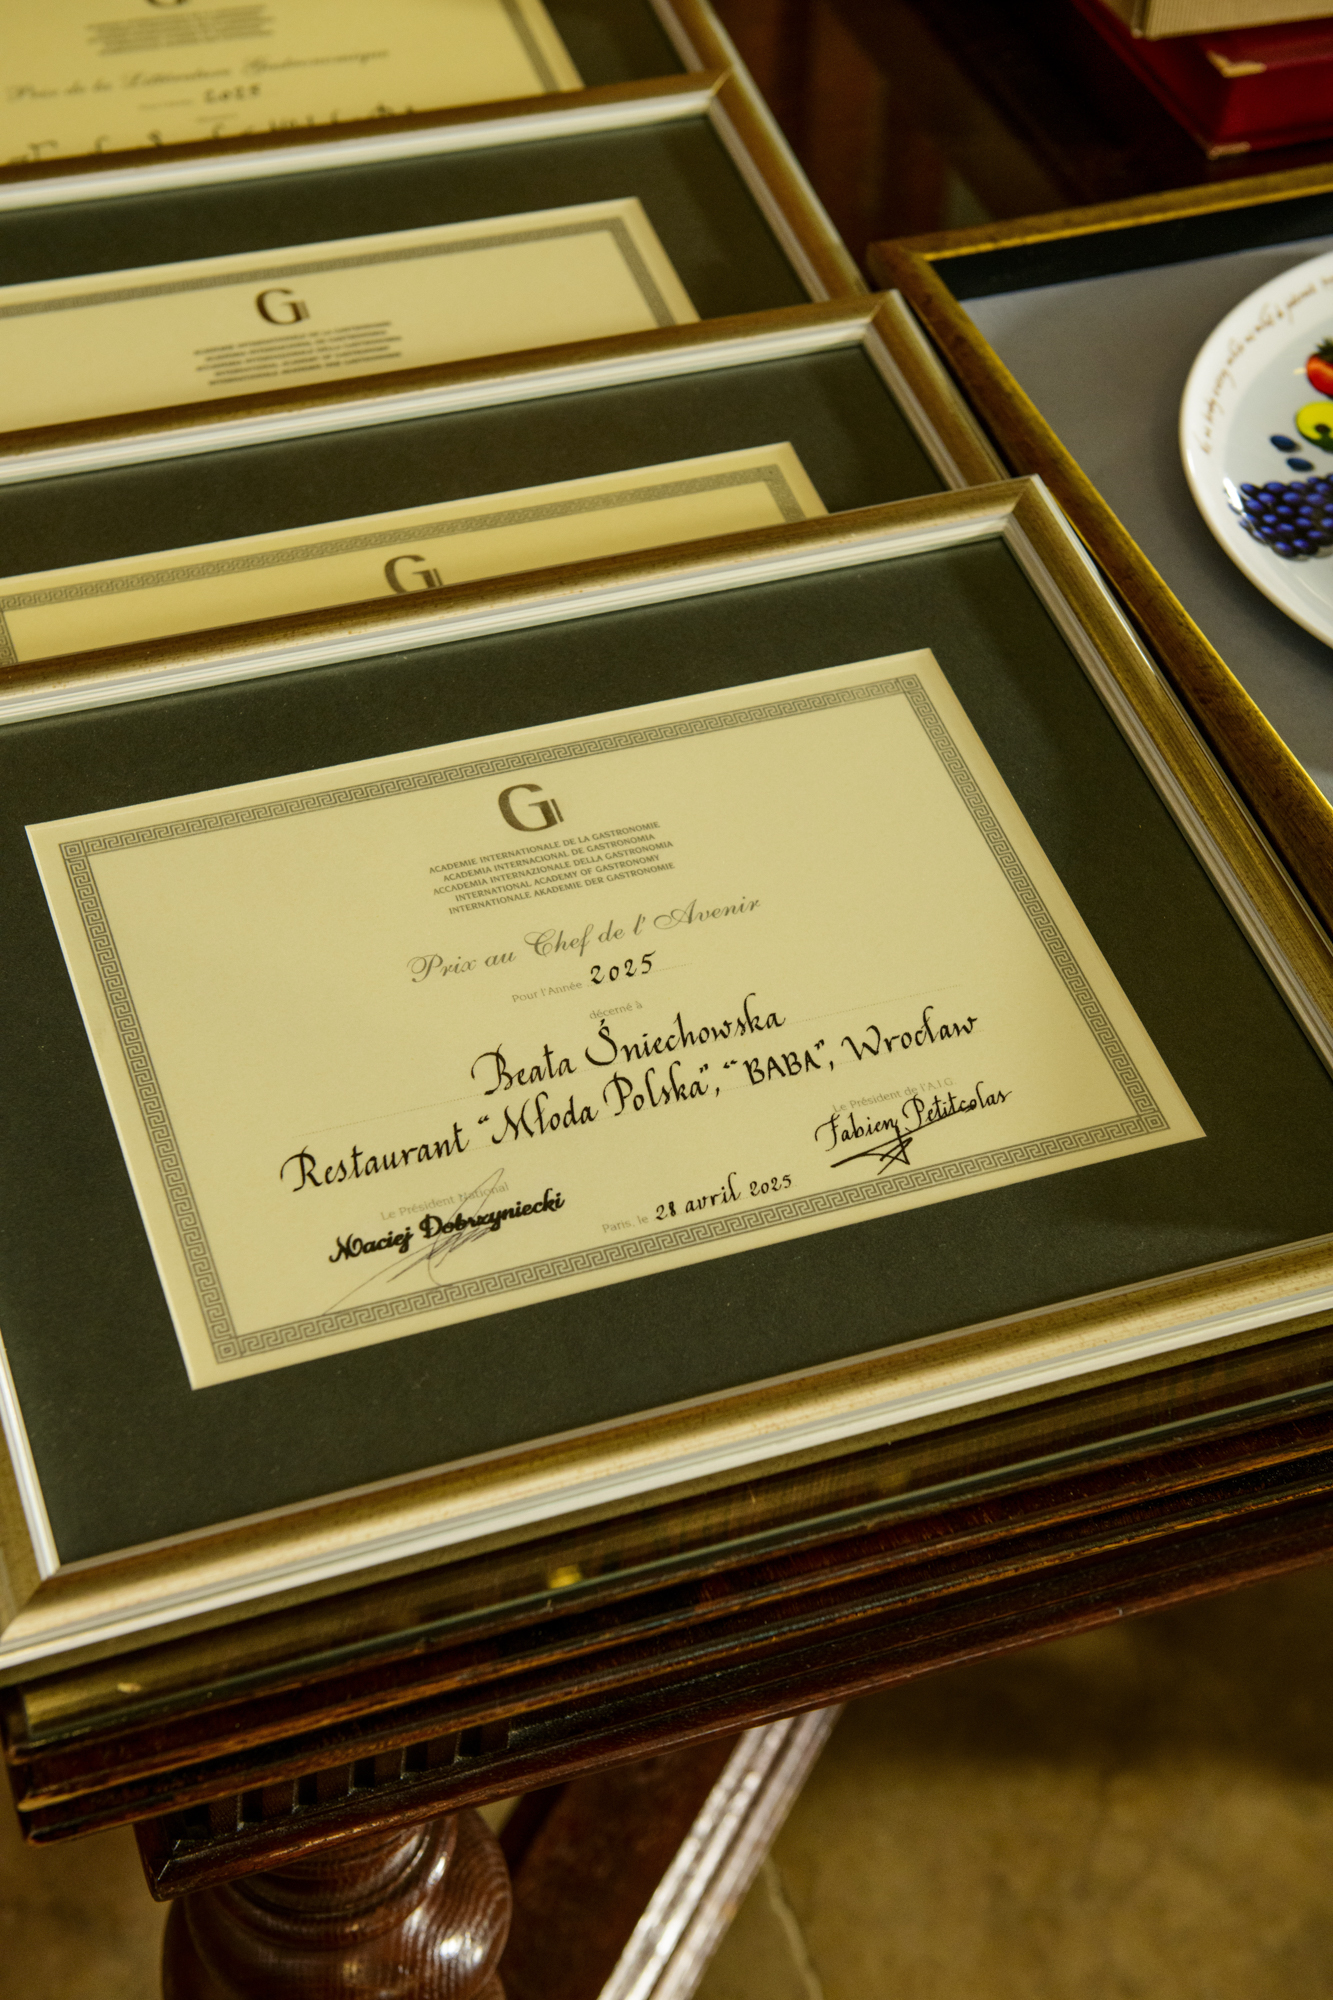 Prix de la Littérature Gastronomique
2025
G
G
G
ACADEMIE INTERNATIONALE DE LA GASTRONOMIE
ACADEMIA INTERNACIONAL DE GASTRONOMIA
ACCADEMIA INTERNAZIONALE DELLA GASTRONOMIA
INTERNATIONAL ACADEMY OF GASTRONOMY
INTERNATIONALE AKADEMIE DER GASTRONOMIE
Prix au Chef de l' Avenir
Pour l'Année 2025
décerné à
Beata Śniechowska
Restaurant "Młoda Polska", "BABA", Wrocław
Le Président National
Maciej Dobrzyniecki
Paris, le 28 avril 2025
Le Président de l'A.I.G.
Fabien Petitcolas